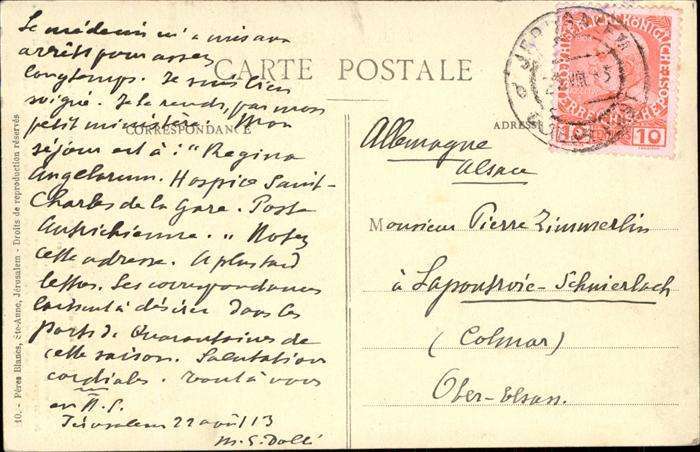 Le médecin m'a mis aux
arrêts pour assez
longtemps. Je suis bien
soigné. Je le rends, par mon
petit ministère. Mon
séjour est à : "Regina
Angelorum. Hospice Saint-
Charles de la Gare. Poste
Autrichienne." Notez
cette adresse. A plus tard
lettres. Les correspondances
laissent à désirer dans les
ports de Quarantaines de
cette saison. Salutations
cordiales. Tout à vous
en N.S.
Jérusalem 22 août 13
CARTE POSTALE
CORRESPONDANCE
ADRESSE
Allemagne
Alsace
Monsieur Pierre Zimmerlin
à Lapoutroie-Schnierlach
(Colmar)
Ober-Elsass.
10
10. - Pères Blancs, Ste-Anne, Jérusalem - Droits de reproduction réservés
JERUSALEM